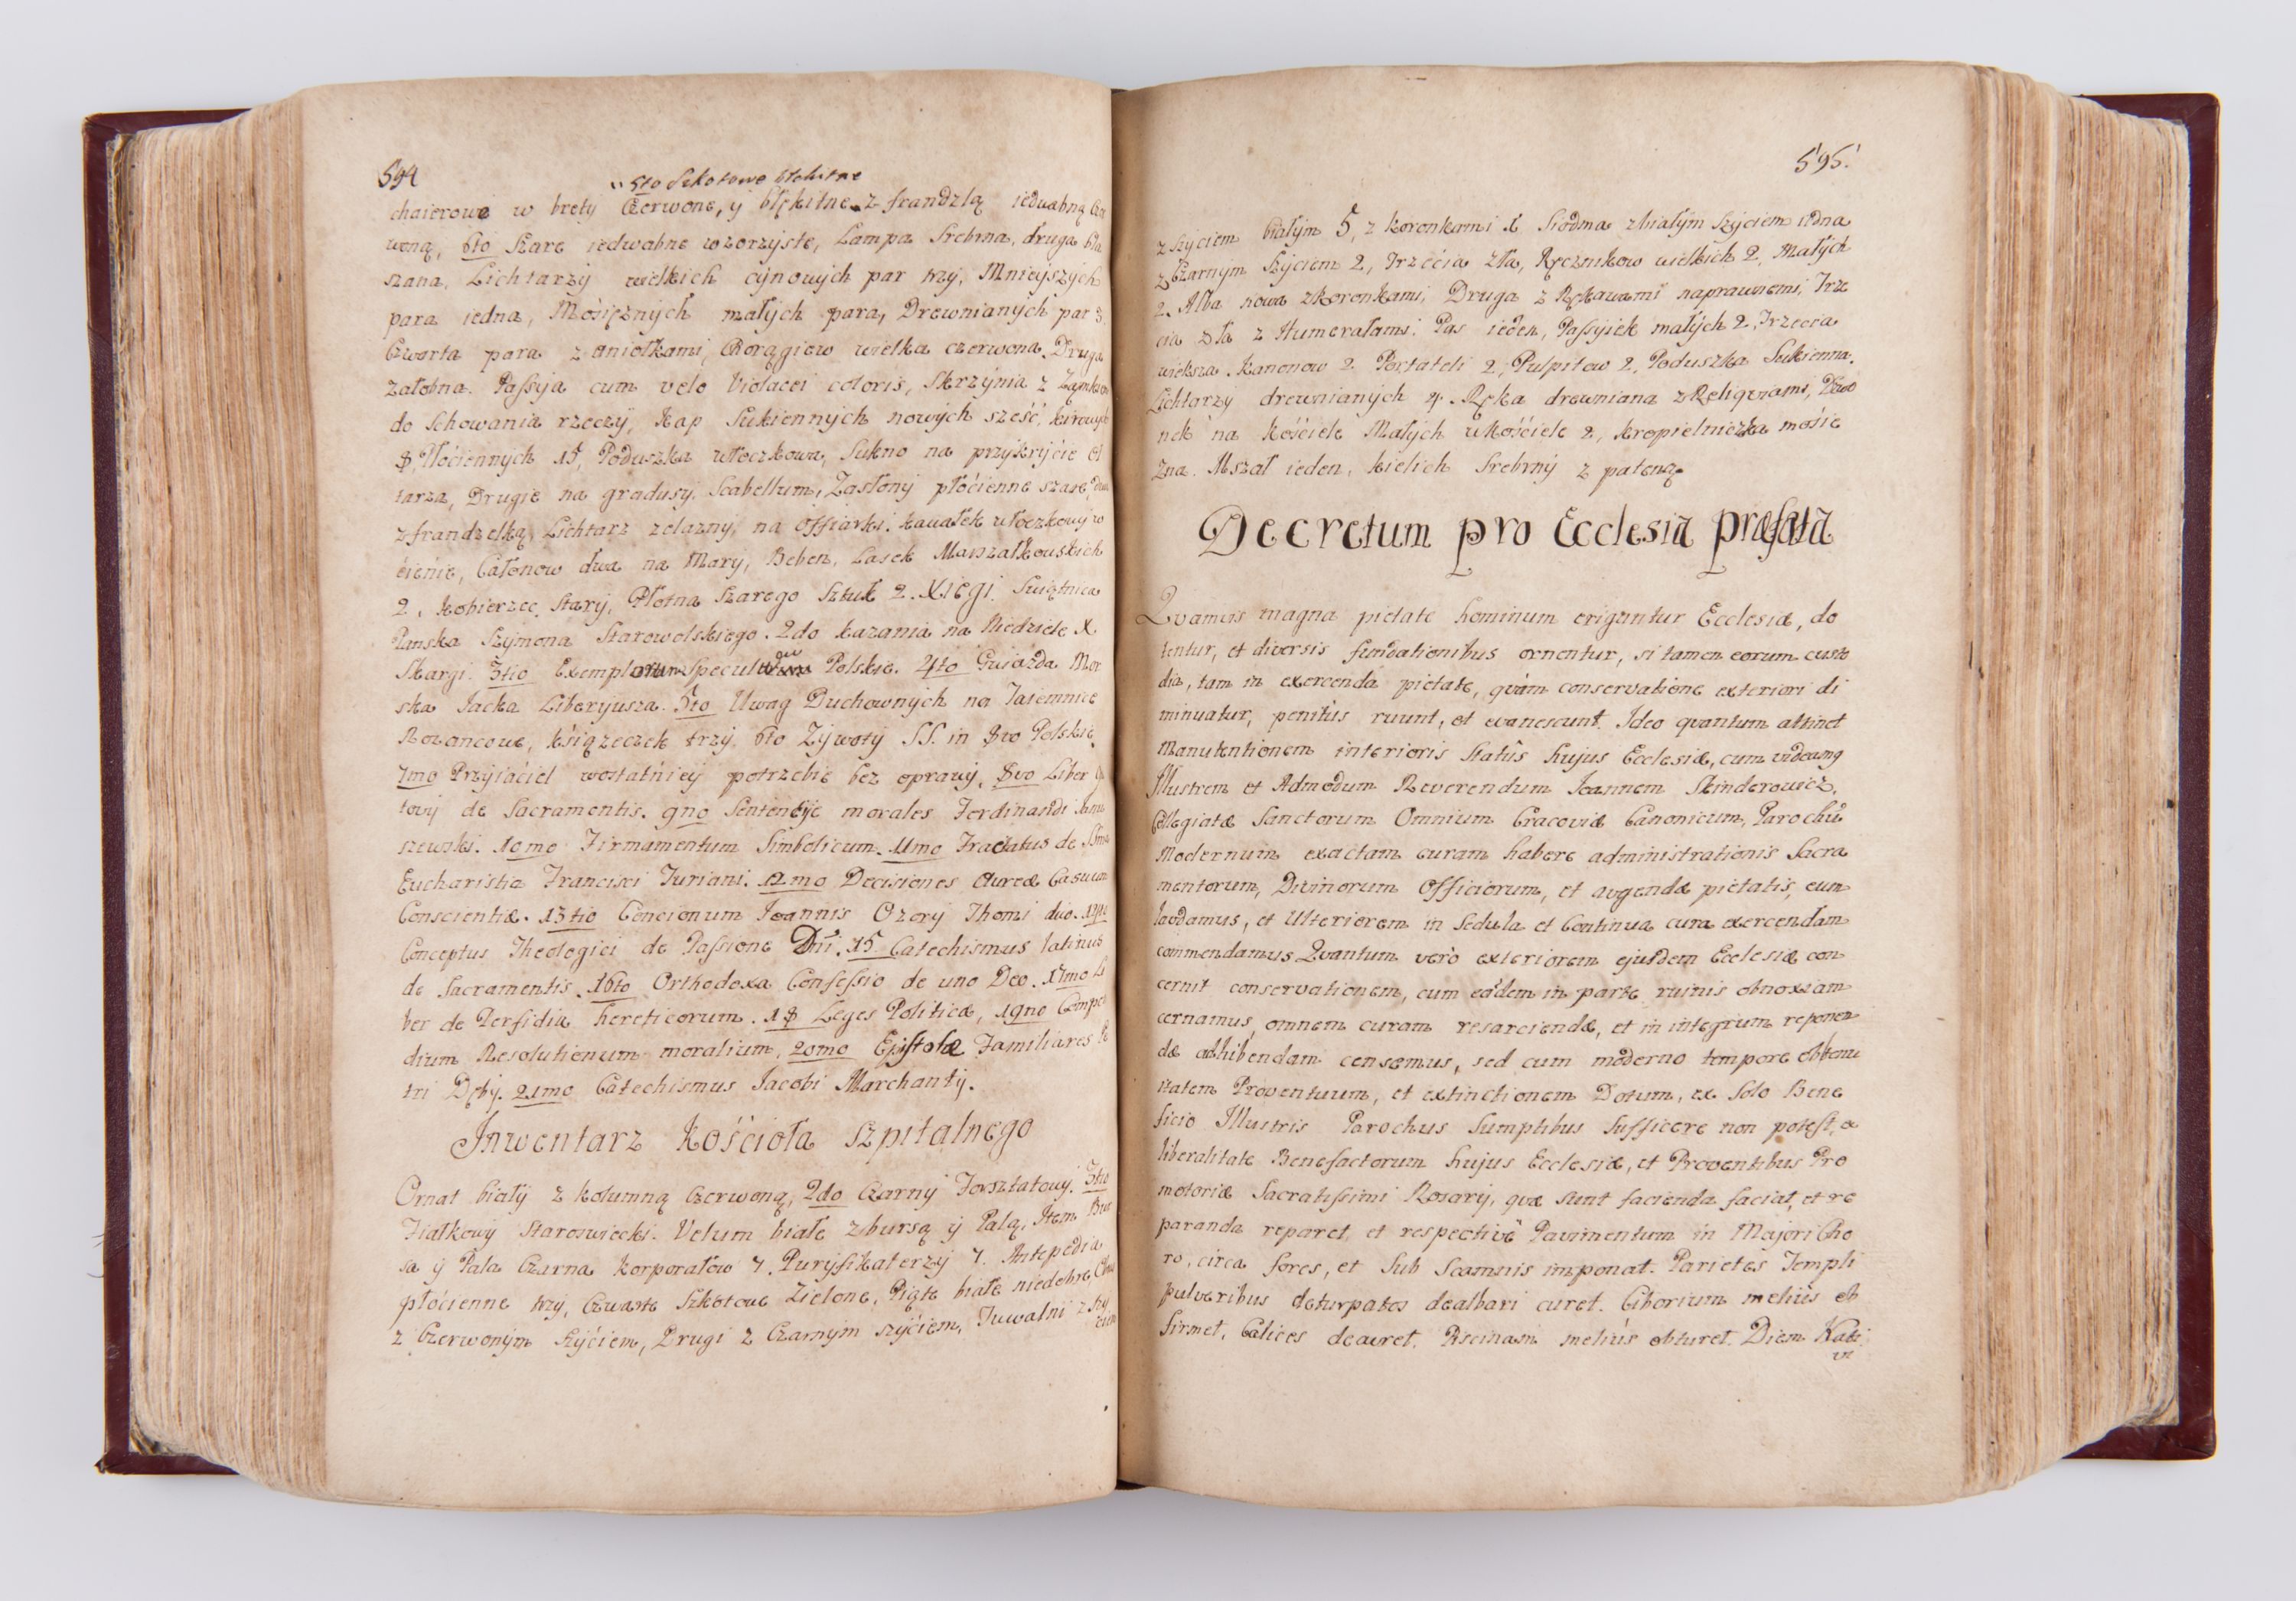 594
5to Szkotowe błekitne
chaierowe w brety Czerwone, y błękitne z frandzlą iedwabną Cze
woną, 6to Szare iedwabne wzorzyste, Lampa Srebrna, druga bla
szana, Lichtarzy wielkich cynowych par trzy, Mnieyszych
para iedna, Mosiężnych małych para, Drewnianych par 3,
Czwarta para z aniołkami, Chorągiew wielka czerwona. Druga
żałobna. Passyja cum velo Violacei coloris, Skrzynia z Zamkiem
do Schowania rzeczy, Kap Sukiennych nowych sześć, kirowych
8, Płóciennych 15, Poduszka włoczkowa, Sukno na przykrycie Oł
tarza, Drugie na gradusy, Scabellum, Zasłony płócienne szare, dwie
z frandzelką, Lichtarz zelazny, na Offiarki. kawałek włoczkowy w
cienie, Całonow dwa na Mary, Beben, Lasek Marszałkowskich
2, kobierzec stary, Płotna Szarego Sztuk 2. Xięgi. Swiątnica
Panska Szymona Starowolskiego. 2do kazania na Niedziele X
Skargi. 3tio Exemplorum Speculum Polskie. 4to Gwiazda Mor
ska Jacka Liberyusza. 5to Uwag Duchownych na Taiemnice
Rozancowe, książeczek trzy. 6to Zywoty SS. in 8vo Polskie.
7mo Przyiaciel wostatniey potrzebie bez oprawy. 8vo Liber
tovij de Sacramentis. 9no Sentencye morales Ferdinandi
szewski. 10mo Firmamentum Simbolicum. 11mo Tractatus de Sma
Eucharistia Francisci Turiani. 12mo Decisiones Aureæ Casuum
Conscientiæ. 13tio Concionum Joannis Ozorij Thomi duo. 14to
Conceptus Theologici de Passione Dni. 15 Catechismus latinus
de Sacramentis. 16to Orthodoxa Confessio de uno Deo. 17mo Li
ber de Perfidia hereticorum. 18 Leges Politicæ, 19no Compen
dium Resolutionum moralium, 20mo Epistolæ Familiares
tri Dębij. 21mo Catechismus Jacobi Marchantij.
Inwentarz Kościoła Szpitalnego
Ornat biały z kolumną Czerwoną, 2do Czarny Forsztatowy. 3tio
Fiałkowy Staroswiecki. Velum białe z bursą y Palą, Item Bur
sa y Pala Czarna Korporałow 7. Puryfikaterzy 7. Antepedia
płócienne trzy, Czwarte Szkotowe Zielone, Piąte białe niedobre,
z Czerwonym szyciem, Drugi z Czarnym szyciem, Tuwalni z szy
ciem
595.
z szyciem białym 5, z koronkami 6 Siodma z białym Szyciem iedna
z Czarnym Szyciem 2, Trzecia zła, Ręcznikow wielkich 2, Małych
2. Alba nowa z koronkami, Druga z Rękawami naprawnemi, Trze
cia zła z Humerałami. Pas ieden, Passyiek małych 2. Trzecia
wieksza. Kanonow 2 Portateli 2, Pulpitow 2, Poduszka Sukienna.
Lichtarzy drewnianych 4. Ręka drewniana z Reliquiami, Dzwo
nek na kościele Małych w kościele 2, kropielniczka mosię
zna. Mszał ieden, kielich Srebrny z pateną.
Decretum pro Ecclesia præfata
Quamvis magna pietate hominum erigantur Ecclesiæ, do
tentur, et diversis fundationibus ornentur, si tamen eorum custo
dia, tam in exercenda pietate, quàm conservatione exteriori di
minuatur, penitùs ruunt, et evanescunt. Ideo quantum attinet
Manutentionem interioris Statûs hujus Ecclesiæ, cum videamq
Illustrem et Admodum Reverendum Joannem Skinderowicz,
Collegiatæ Sanctorum Omnium Cracoviæ Canonicum, Parochũ
Modernum exactam curam habere administrationis Sacra
mentorum, Divinorum Officiorum, et augendæ pietatis, eum
laudamus, et Ulteriorem in Sedula et Continua cura exercendam
commendamus. Quantum verò exteriorem ejusdem Ecclesiæ con
cernit conservationem, cum eâdem in parte ruinis obnoxiam
cernamus, omnem curam resarciendæ, et in integrum reponen
dæ adhibendam censemus, sed cum moderno tempore obtenui
tatem Proventuum, et extinctionem Dotum, ex Solo Bene
ficio Illustris Parochus Sumptibus Sufficere non potest, a
liberalitate Benefactorum hujus Ecclesiæ, et Proventibus Pro
motoriæ Sacratissimi Rosarij, quæ sunt facienda faciat, et re
paranda reparet, et respectivè Pavimentum in Majori Cho
ro, circa fores, et Sub Scamnis imponat. Parietes Templi
pulveribus deturpatos dealbari curet. Ciborium meliùs ob
firmet, Calices deauret. Piscinam meliùs obturet. Diem Kale